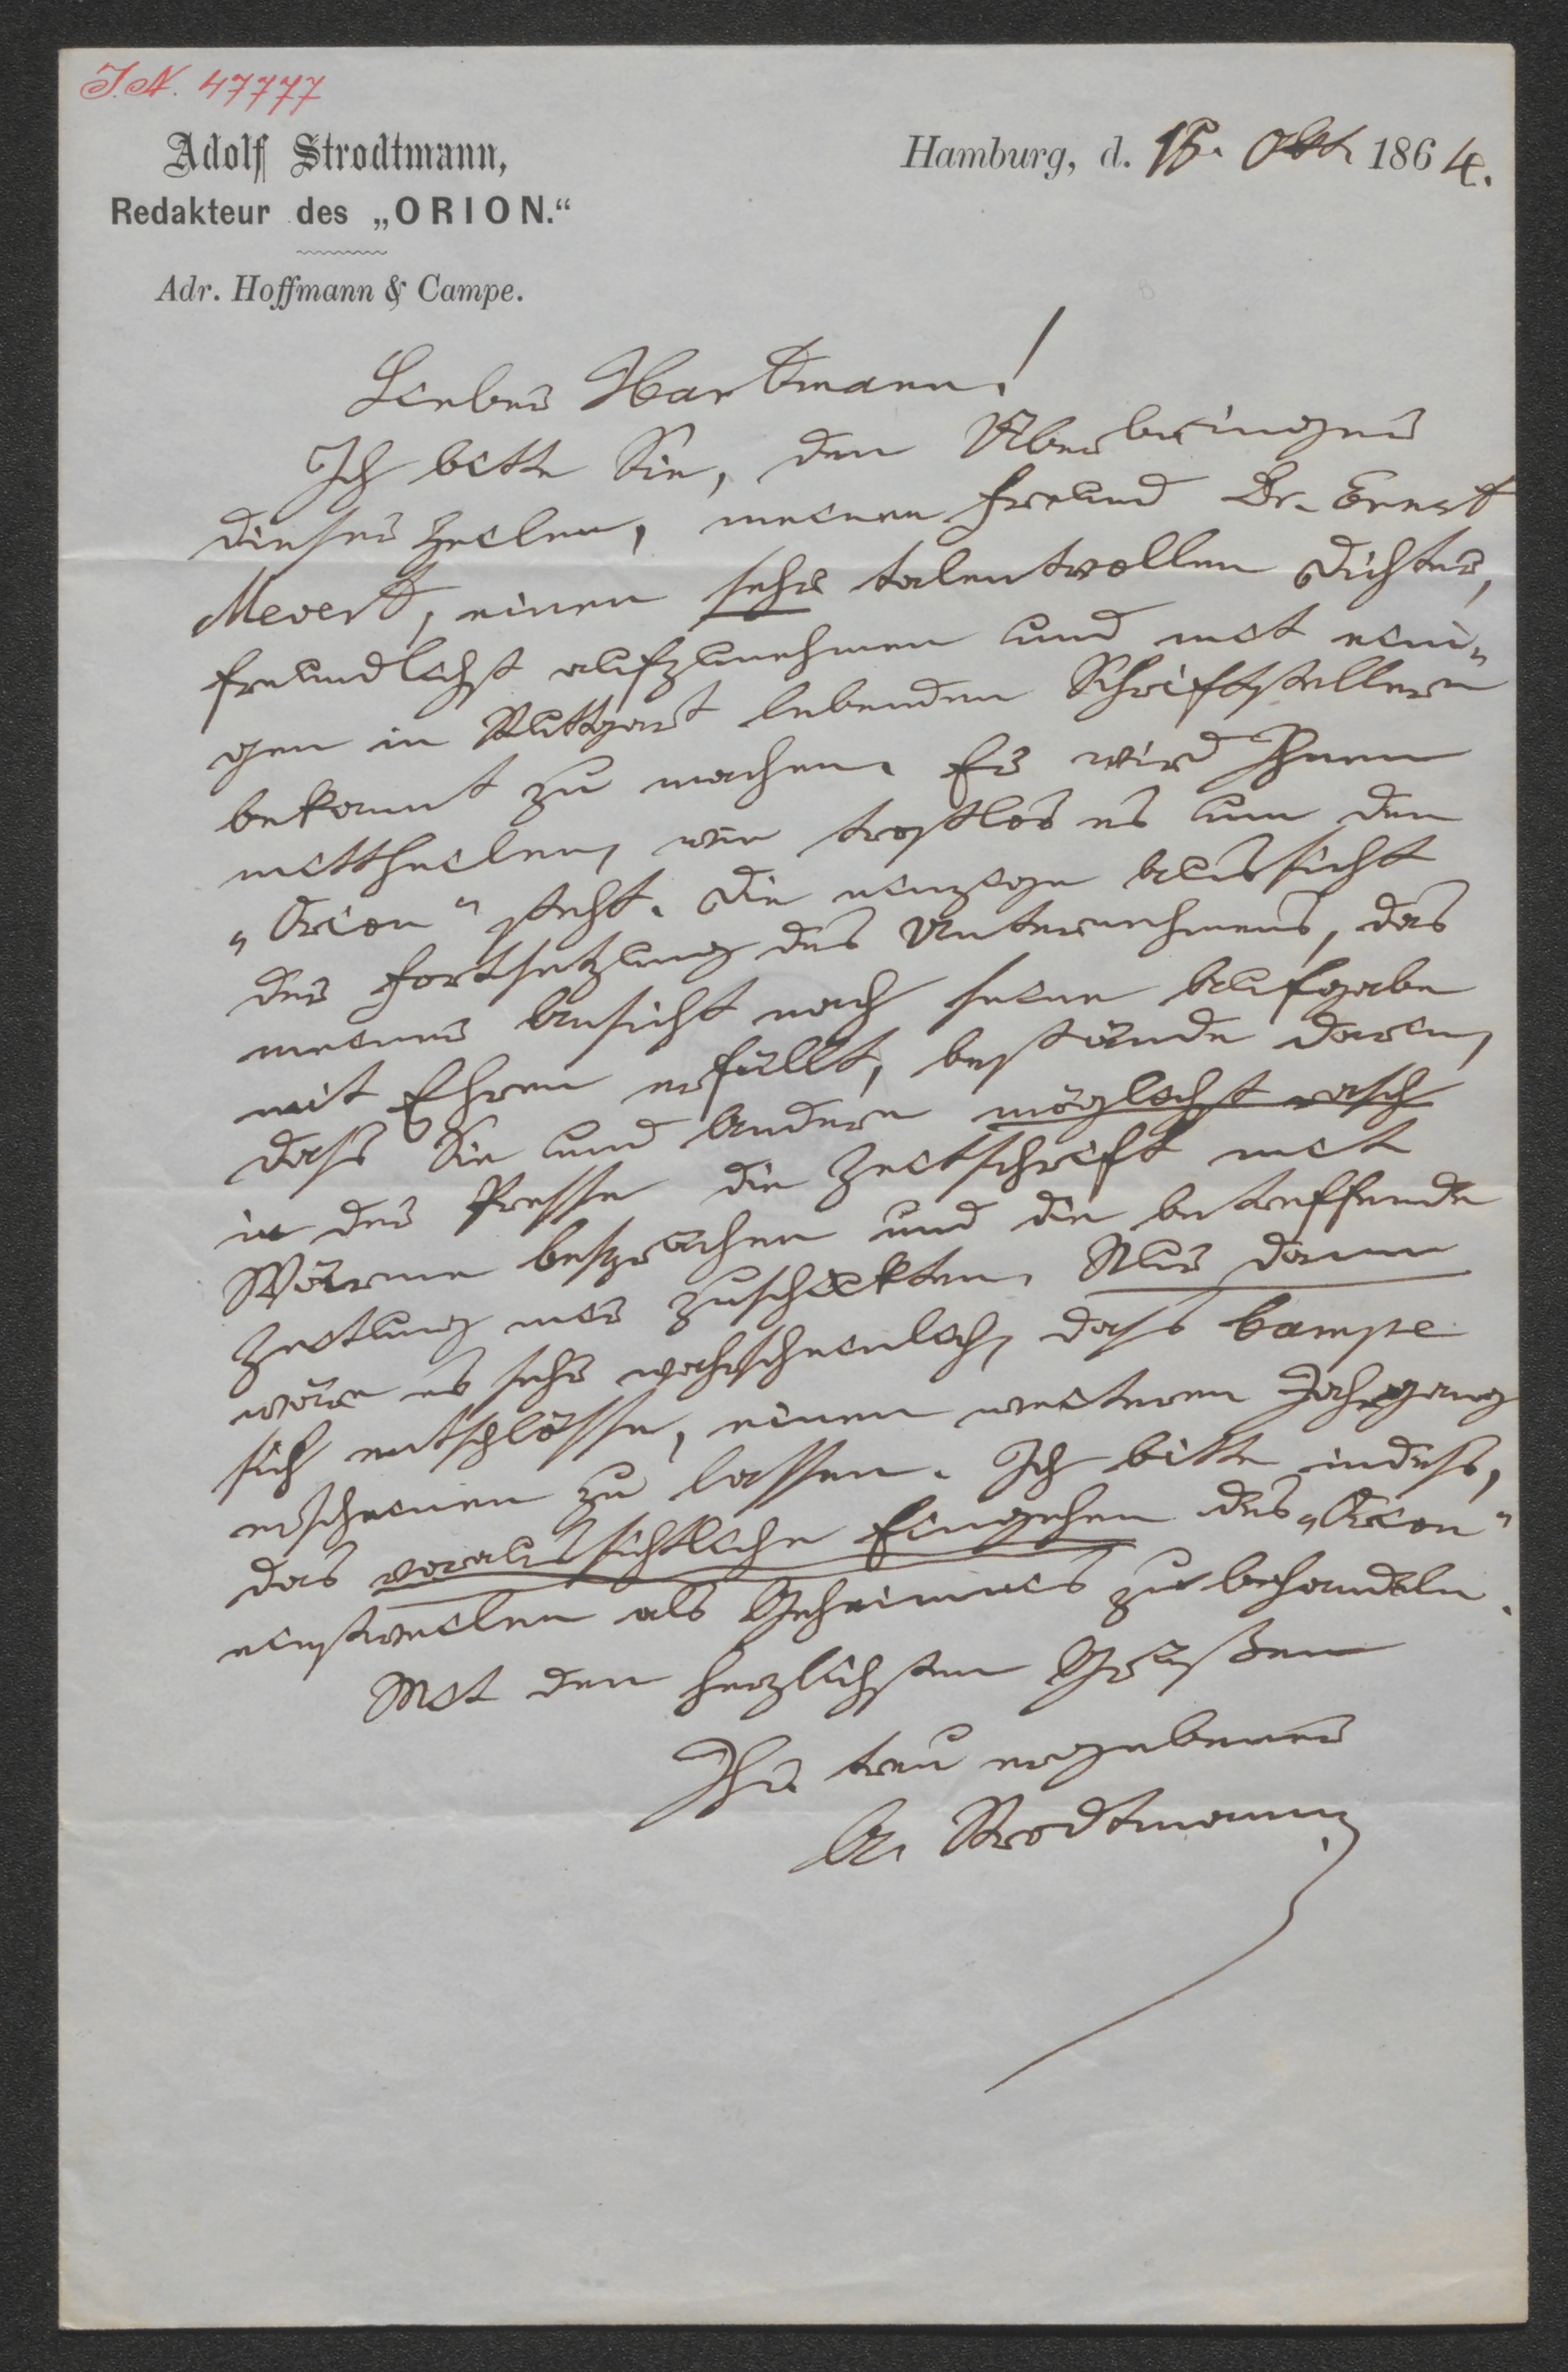 J.N. 47777
Adolf Strodtmann,
Redakteur des „ORION.“
Adr. Hoffmann & Campe.
Hamburg, d. 15. Okt. 1864.
Lieber Hartmann!
Ich bitte Sie, den Überbringer
dieser Zeilen, meinen Freund Dr. Ernst
Mevert, einen sehr talentvollen Dichter,
freundlichst aufzunehmen und mit eini-
gen in Stuttgart lebenden Schriftstellern
bekannt zu machen. Er wird Ihnen
mittheilen, wie trostlos es um den
„Orion“ steht. Die einzige Aussicht
der Fortsetzung des Unternehmens, das
meiner Ansicht nach seine Aufgabe
mit Ehren erfüllt, bestände darin,
dass Sie und Andere möglichst rasch
in der Presse die Zeitschrift mit
Wärme besprächen und die betreffende
Zeitung mir zuschickten. Nur dann
wäre es sehr wahrscheinlich, dass Campe
sich entschlösse, einen weiteren Jahrgang
erscheinen zu lassen. Ich bitte indess,
das voraussichtliche Eingehen des „Orion“
einstweilen als Geheimnis zu behandeln.
Mit den herzlichsten Grüßen
Ihr treu ergebener
A. Strodtmann